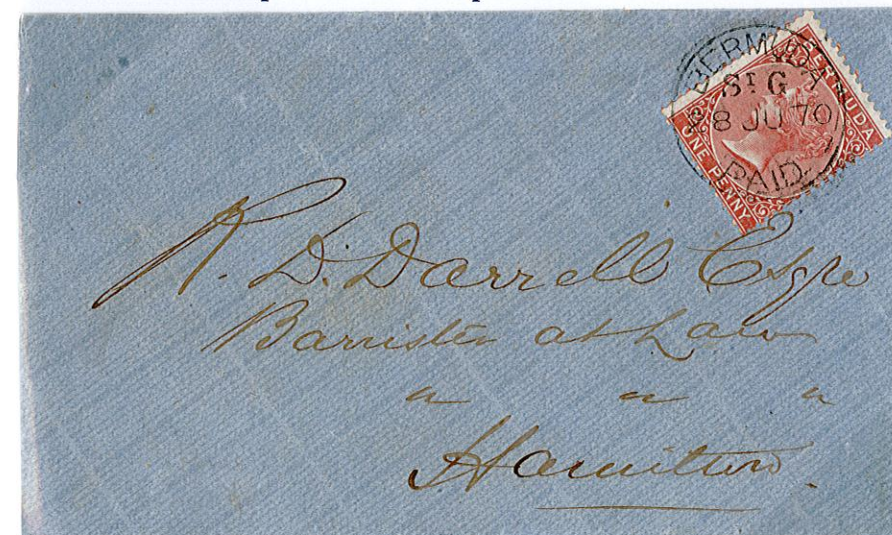 BERMUDA
ST G
8 JU 70
PAID
BERMUDA
ONE PENNY
R. D. Darrell Esqre
Barrister at Law
" " "
Hamilton.